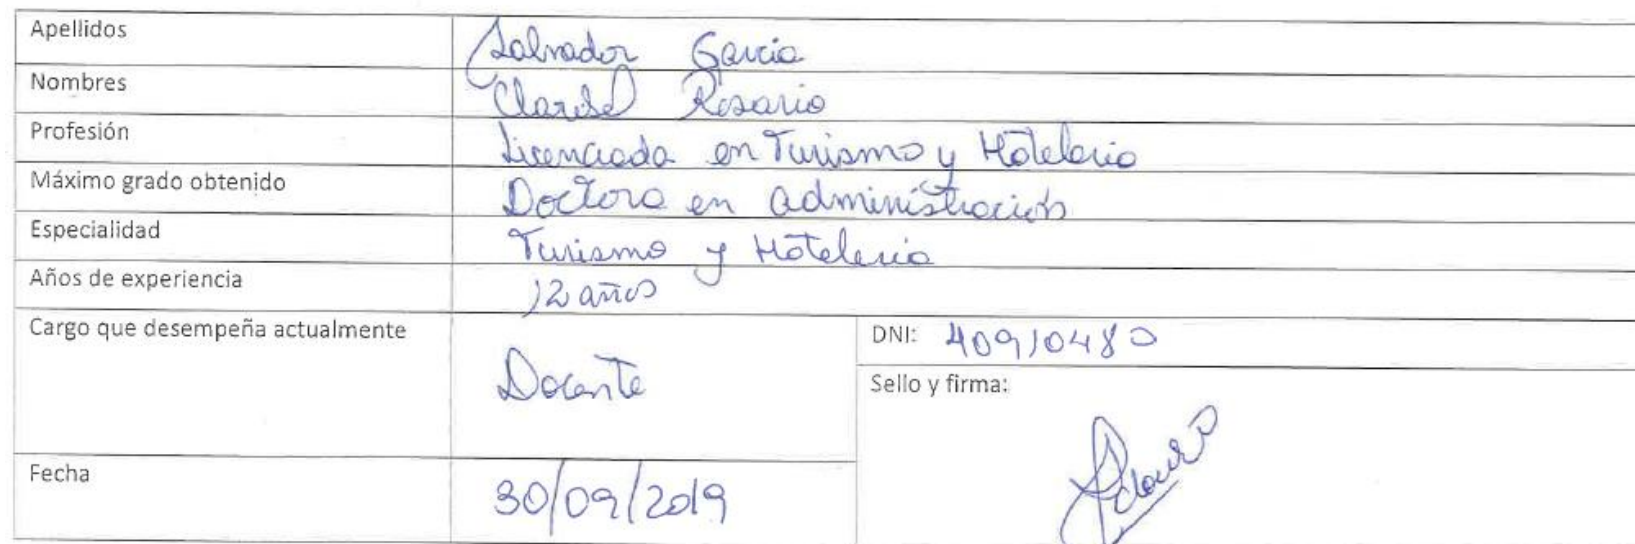 Apellidos Salvador Garcia
Nombres Claribel Rosario
Profesión Licenciada en Turismo y Hotelería
Máximo grado obtenido Doctora en administración
Especialidad Turismo y Hotelería
Años de experiencia 12 años
Cargo que desempeña actualmente Docente
DNI: 40910480
Sello y firma:
Fecha 30/09/2019